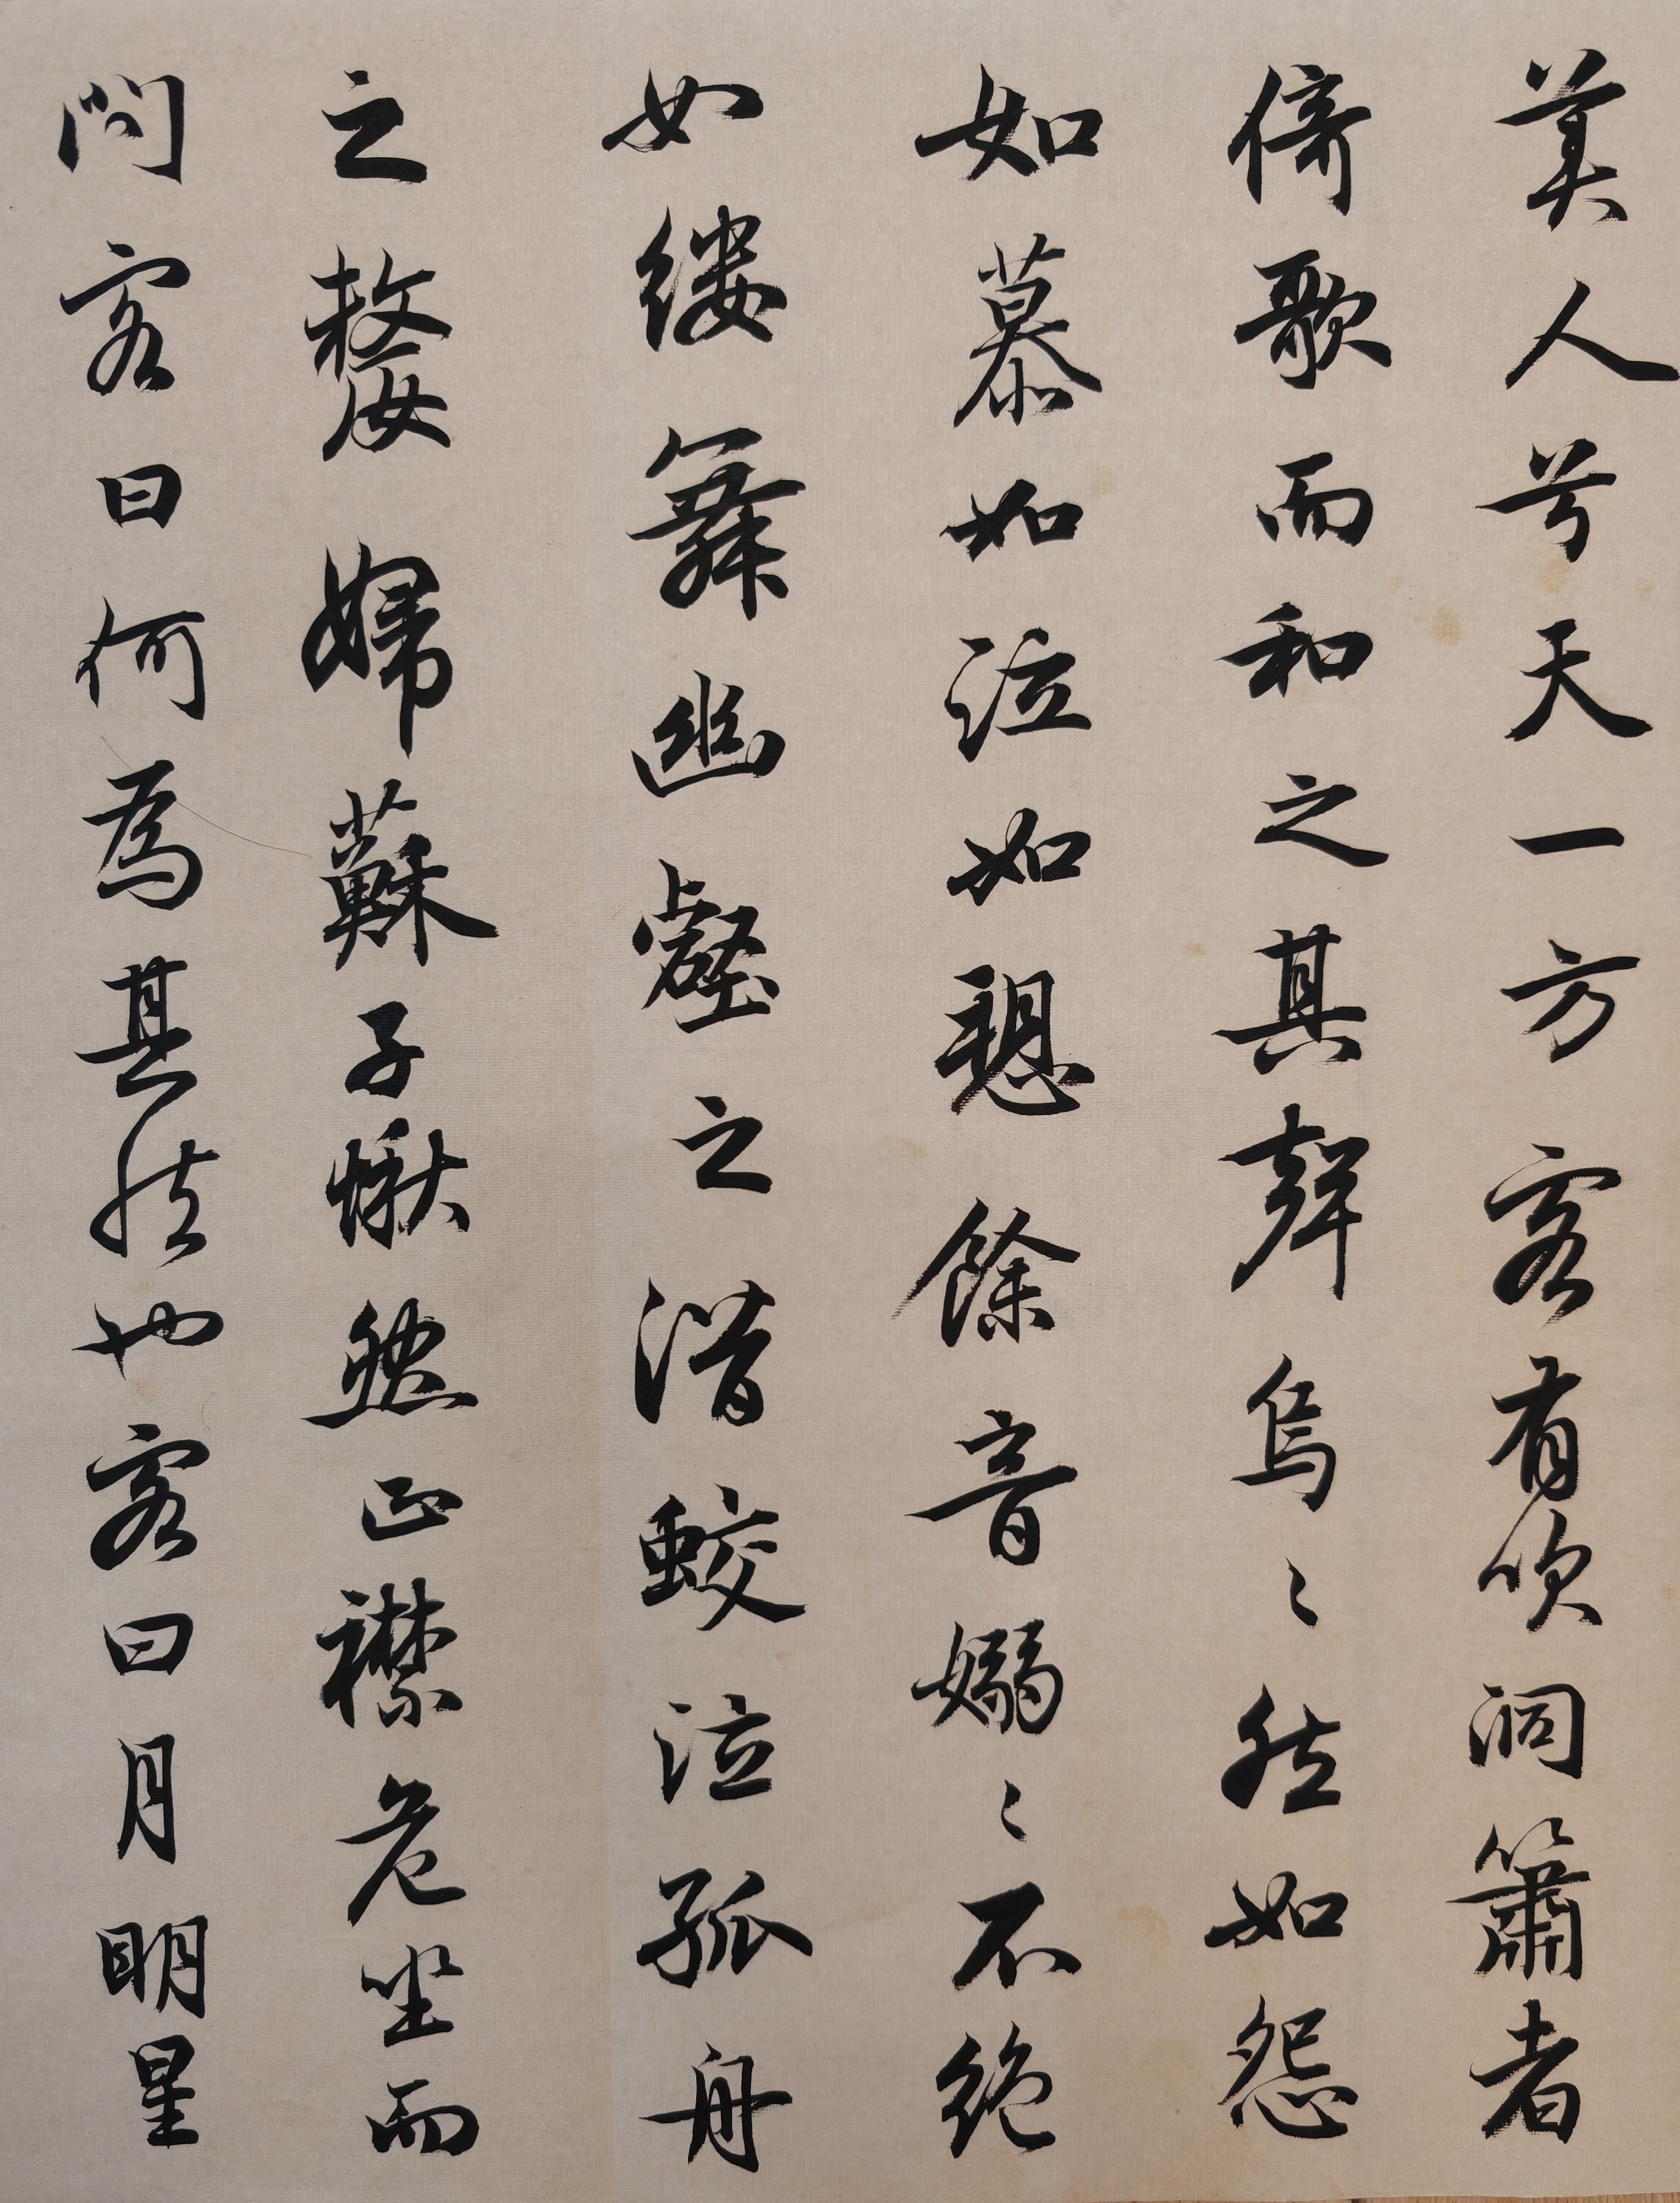 美人兮天一方客有吹洞簫者
倚歌而和之其聲烏〻然如怨
如慕如泣如愬餘音嫋〻不絶
如縷舞幽壑之潛蛟泣孤舟
之嫠婦蘇子愀然正襟危坐而
問客曰何為其然也客曰月明星